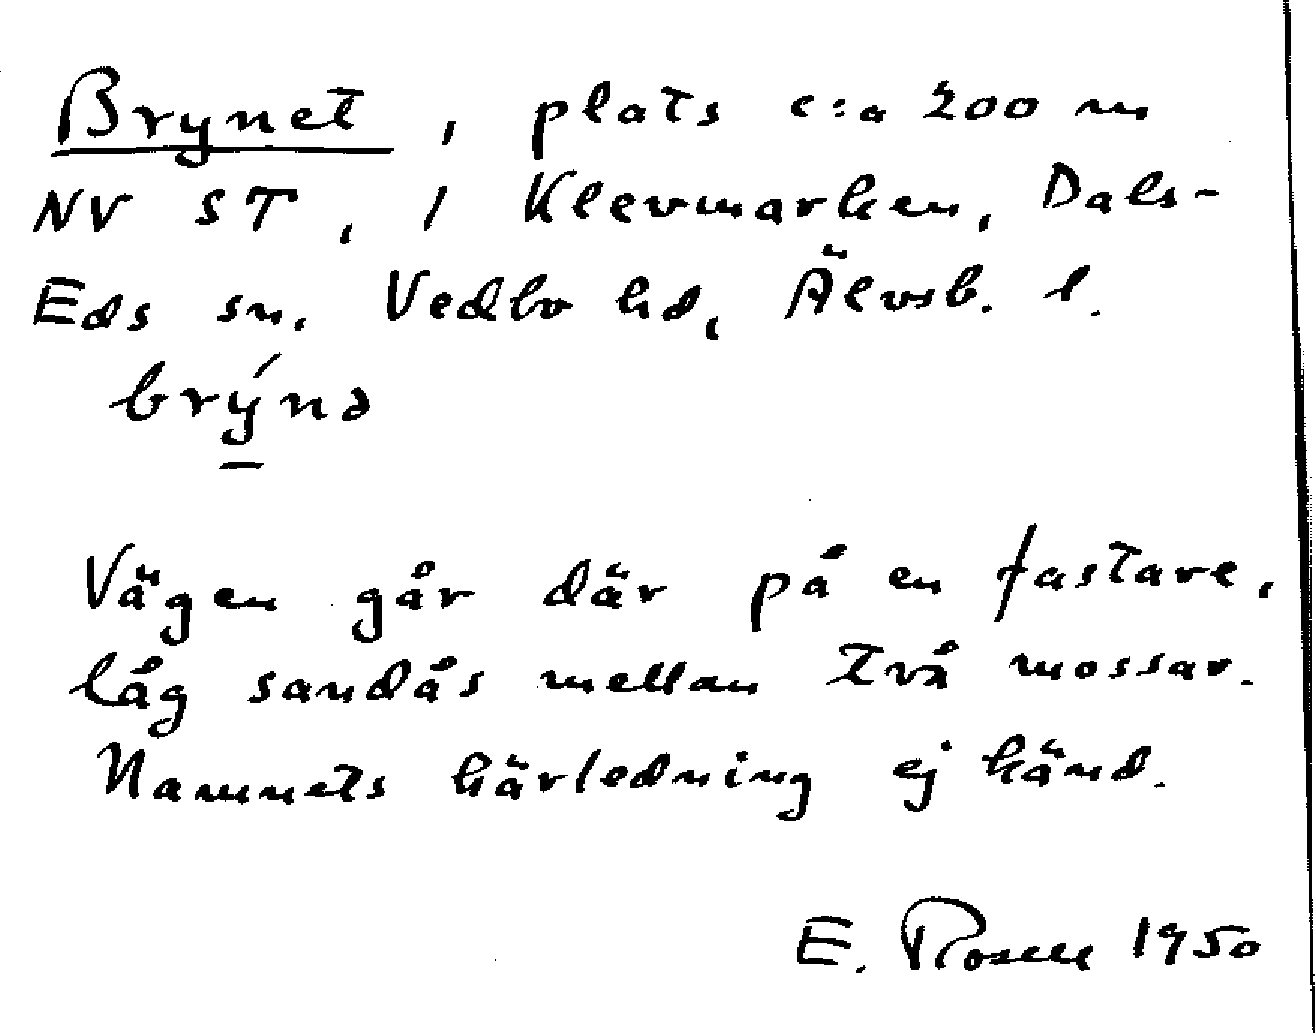 Brynet, plats c:a 200 m
NV ST, 1 Klevmarken, Dals-
Eds sn. Vedbo hd, Älvsb. l.
brýnə
Vägen går där på en fastare,
låg sandås mellan två mossar.
Namnets härledning ej känd.
E. Rosell 1950